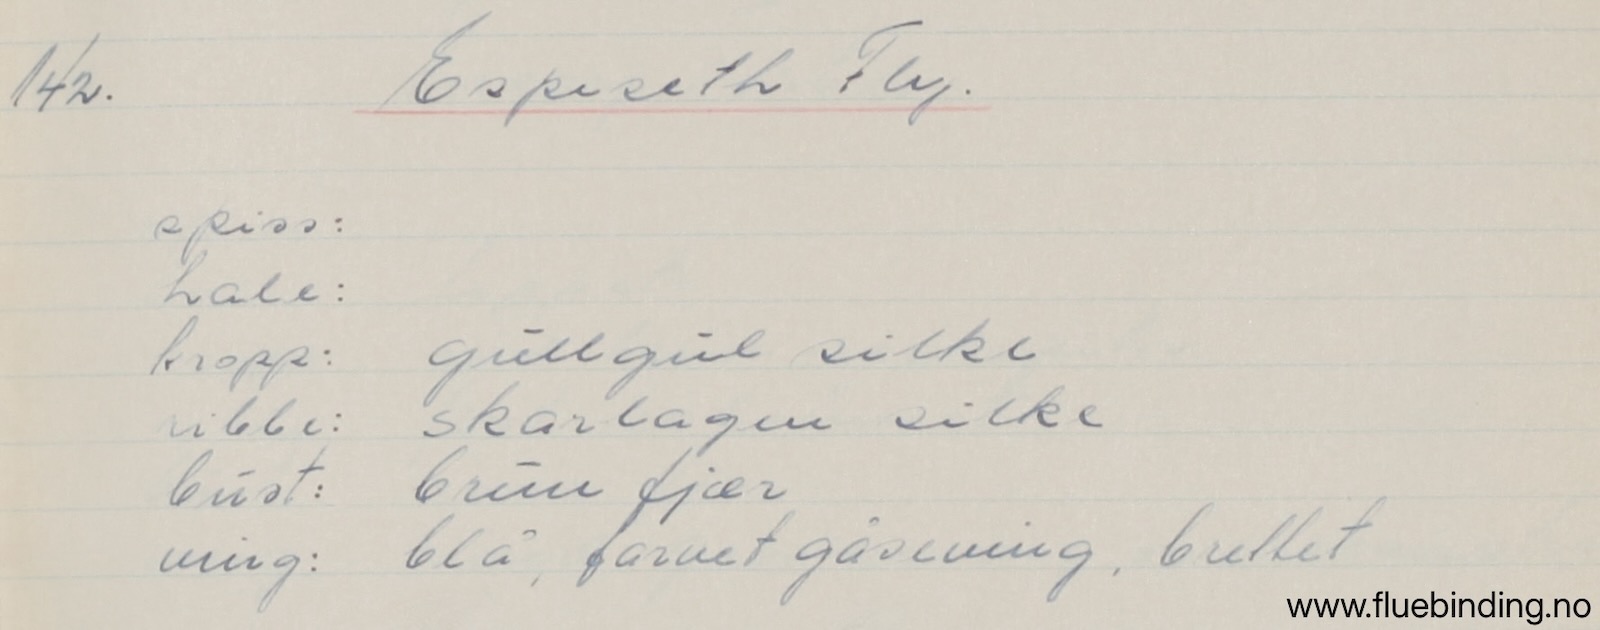 142. Espeseth Fly.
spiss:
hale:
kropp: gullgul silke
ribbe: skarlagen silke
bust: brun fjær
ving: blå, farvet gåseving, brettet
www.fluebinding.no